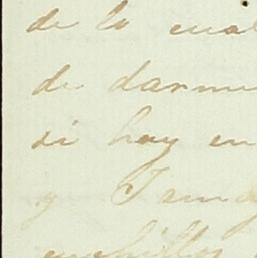 de lo cual
de darme
si hay en
y
cuchillos